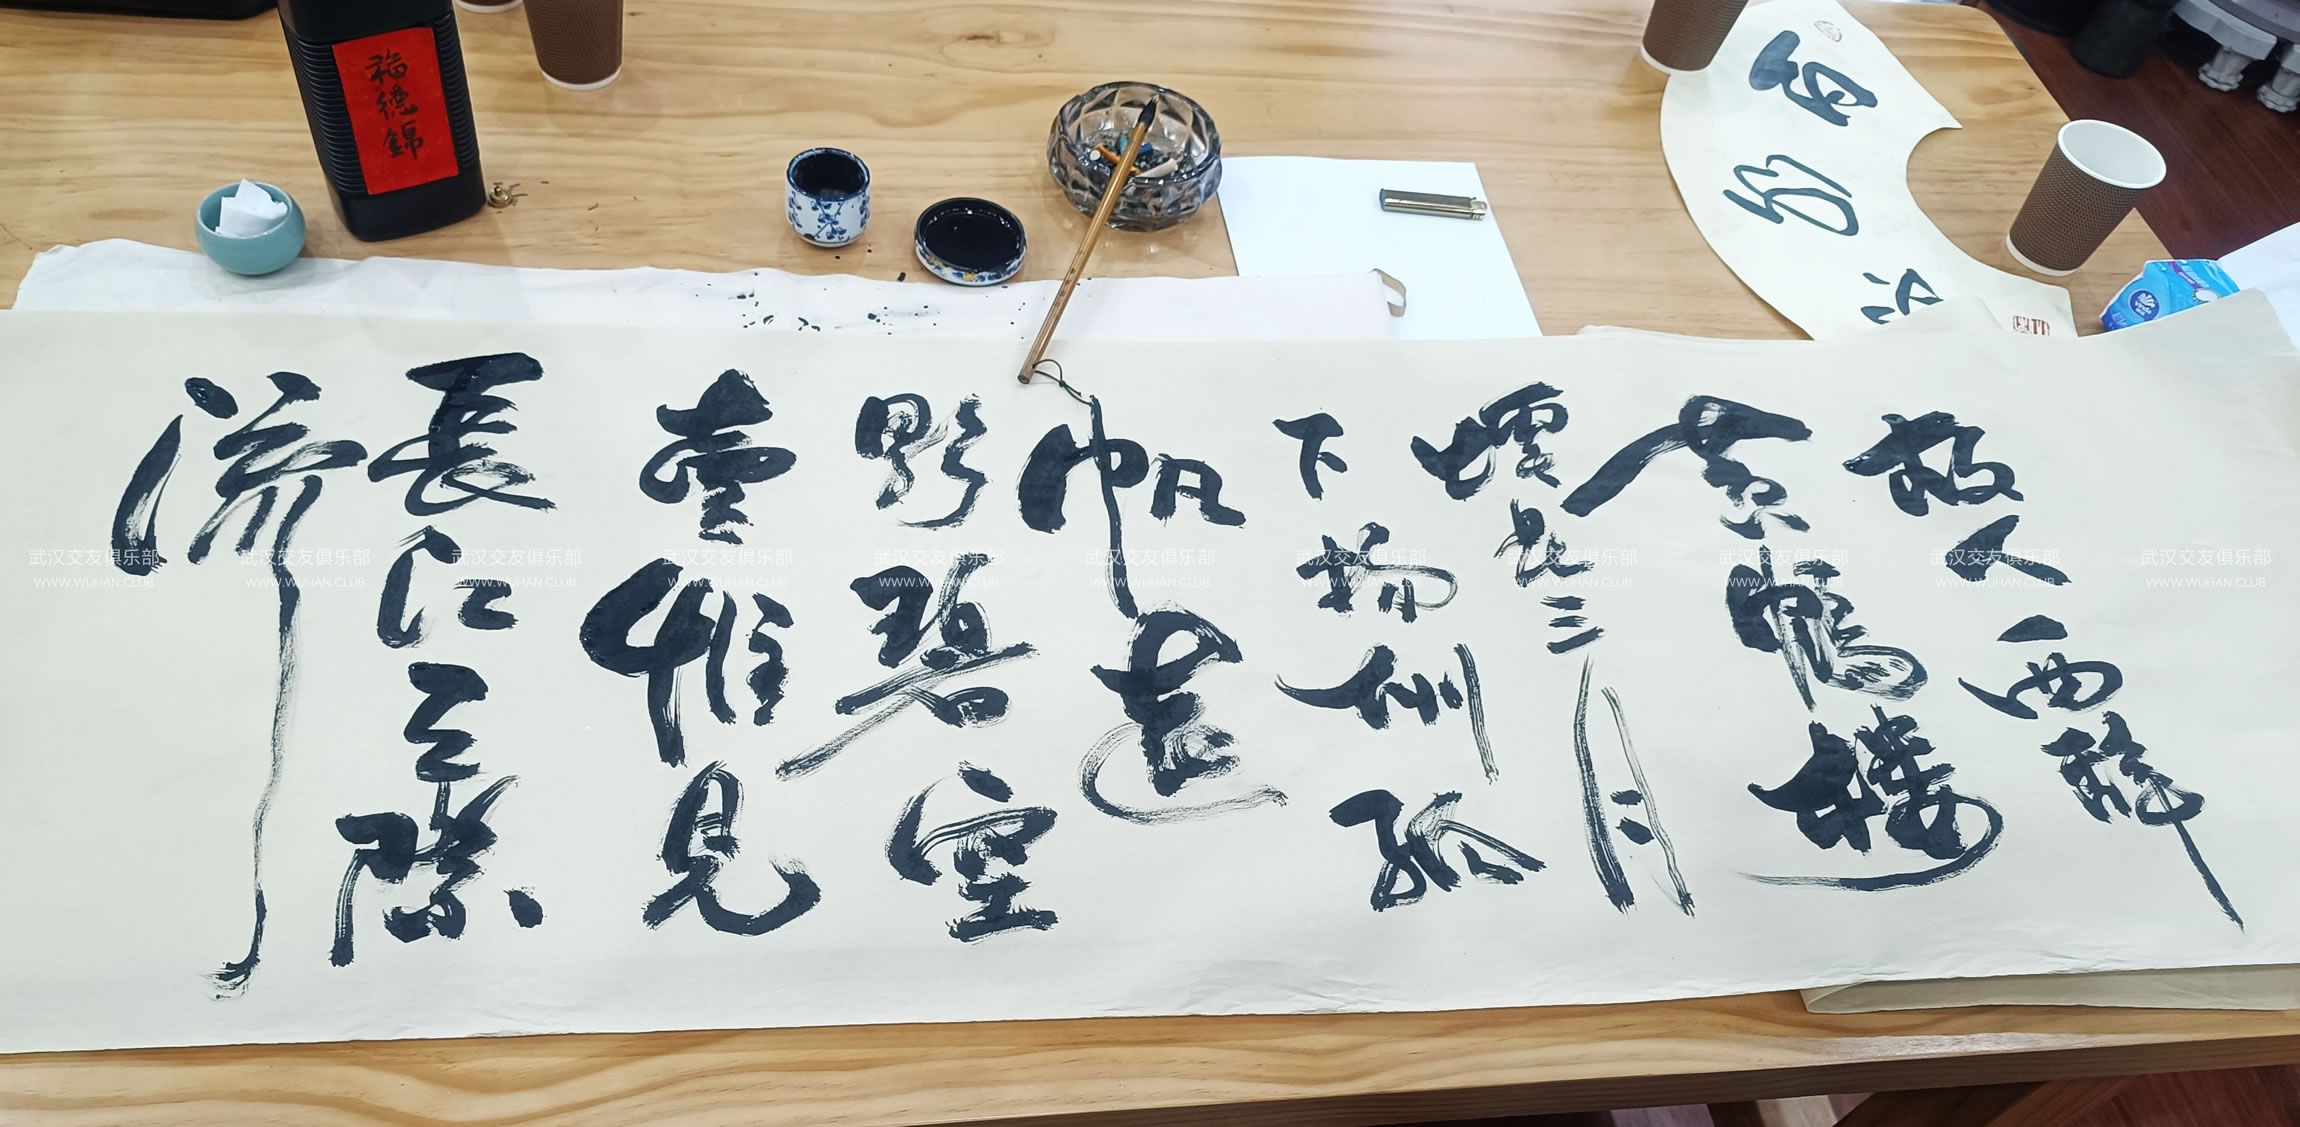 福德錦
故人西辭
黃鶴樓
煙花三月
下揚州孤
帆遠
影碧空
盡惟見
長江天際
流
武汉交友俱乐部 武汉交友俱乐部 武汉交友俱乐部 武汉交友俱乐部 武汉交友俱乐部 武汉交友俱乐部 武汉交友俱乐部 武汉交友俱乐部 武汉交友俱乐部 武汉交友俱乐部 武汉交友俱乐部
WWW.WUHAN.CLUB WWW.WUHAN.CLUB WWW.WUHAN.CLUB WWW.WUHAN.CLUB WWW.WUHAN.CLUB WWW.WUHAN.CLUB WWW.WUHAN.CLUB WWW.WUHAN.CLUB WWW.WUHAN.CLUB WWW.WUHAN.CLUB WWW.WUHAN.CLUB